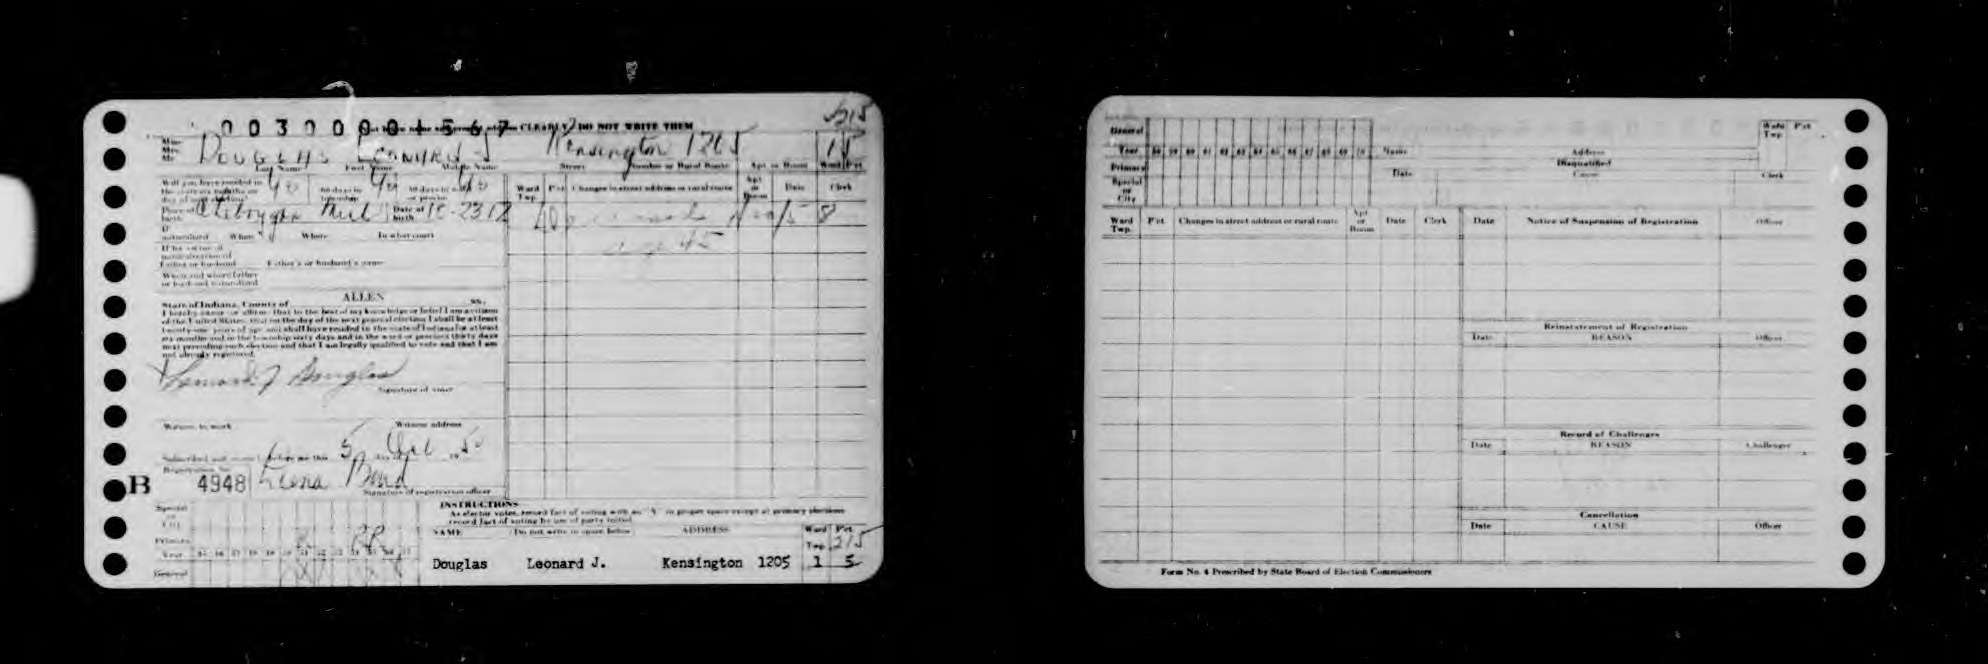 215
0030000 1567
CLEARLY DO NOT WRITE THEM
Miss
Mrs.
Mr. DOUGLAS LEONARD J Kensington 1205 1 5
Last Name First Name Middle Name Street Number or Rural Route Apt. or Room Ward Pct.
Will you have resided in
the state six months on
day of next election?
60 days in
township
30 days in ward
or precinct
Ward
Twp.
Pct. Changes in street address or rural route
Apt
or
Room
Date Clerk
Place of
birth Cheboygan Mich
Date of
birth 10-23-12
If
naturalized When Where In what court
If by virtue of
naturalization of
Father or husband Father's or husband's name
When and where father
or husband naturalized
State of Indiana, County of ALLEN ss.
I hereby swear or affirm that to the best of my knowledge or belief I am a citizen
of the United States, that on the day of the next general election I shall be at least
twenty-one years of age and shall have resided in the state of Indiana for at least
six months and in the township sixty days and in the ward or precinct thirty days
next preceding such election and that I am legally qualified to vote and that I am
not already registered.
Leonard J Douglas
Signature of voter
Witness to mark Witness address
Subscribed and sworn to before me this 5 day of 19 50
Registration No.
B 4948
Signature of registration officer
INSTRUCTIONS
As elector votes, record fact of voting with an "X" in proper space except at primary elections
record fact of voting by use of party initial
Special
or
City
Primary
Year
General
NAME (Do not write in space below) ADDRESS Ward Pct.
Twp. 215
Douglas Leonard J. Kensington 1205 1 5
General
Year 58 59 60 61 62 63 64 65 66 67 68 69 70
Primary
Special
or
City
Name Address
Ward
Twp.
Pct.
Disqualified
Date Cause Clerk
Ward
Twp.
Pct. Changes in street address or rural route
Apt
or
Room
Date Clerk
Date Notice of Suspension of Registration Officer
Reinstatement of Registration
Date REASON Officer
Record of Challenges
Date REASON Challenger
Cancellation
Date CAUSE Officer
Form No. 4 Prescribed by State Board of Election Commissioners